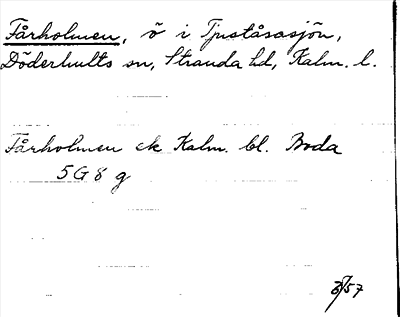 Fårholmen, ö i Tjuståsasjön,
Döderhults sn, Stranda hd, Kalm. l.
Fårholmen ek Kalm. bl. Boda
5G8g